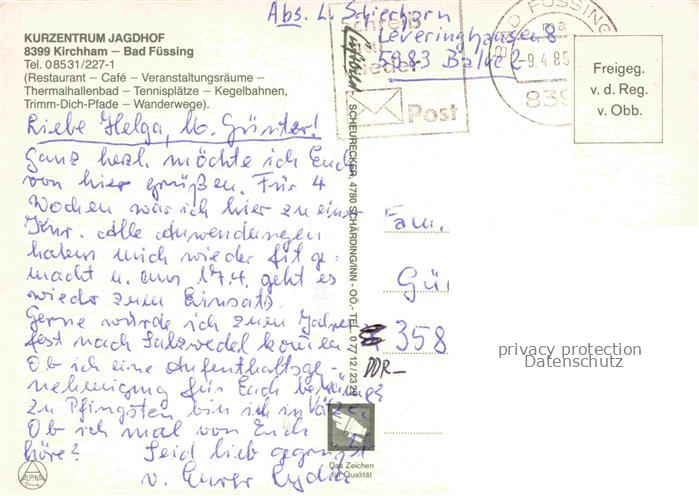 KURZENTRUM JAGDHOF
8399 Kirchham – Bad Füssing
Tel. 08531/227-1
(Restaurant – Café – Veranstaltungsräume –
Thermalhallenbad – Tennisplätze – Kegelbahnen,
Trimm-Dich-Pfade – Wanderwege).
Abs. L. Schierhorn
Leveringhausen 8
5983 Balve 2
Schreib
mal
wieder
Post
BAD FÜSSING
-9.4.85
839
Freigeg.
v. d. Reg.
v. Obb.
Luftbild
SCHEURECKER, 4780 SCHÄRDING/INN - OÖ. - TEL. 0 77 12 / 23 29
Liebe Helga, lb. Günter!
Ganz herzl. möchte ich Euch
von hier grüßen. Für 4
Wochen war ich hier zu einer
Kur. Alle Anwendungen
haben mich wieder fit ge-
macht u. am 17.4. geht es
wieder zum Einsatz.
Gerne würde ich zum Jahres
fest nach Salzwedel kommen
Ob ich eine Aufenthaltsge-
nehmigung für Euch
zu Pfingsten bin ich in
Ob ich mal von Euch
höre? Seid lieb gegrüßt
v. Eurer Lydia
Fam.
Gü
358
DDR-
privacy protection
Datenschutz
Das Zeichen
für Qualität
ALPINA